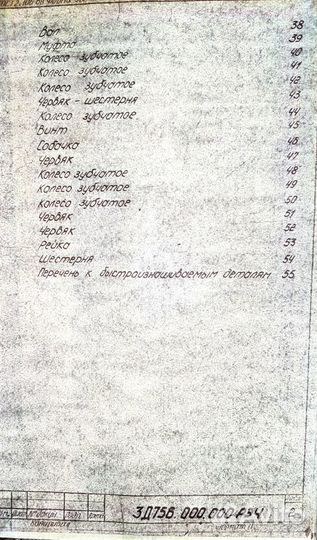 Вал 38
Муфта 39
Колесо зубчатое 40
Колесо зубчатое 41
Колесо зубчатое 42
Червяк - шестерня 43
Колесо зубчатое 44
Винт 45
Собачка 46
Червяк 47
Колесо зубчатое 48
Колесо зубчатое 49
Колесо зубчатое 50
Червяк 51
Червяк 52
Рейка 53
Шестерня 54
Перечень к быстроизнашиваемым деталям 55
3Д756.000.000РЭ4
Копировал